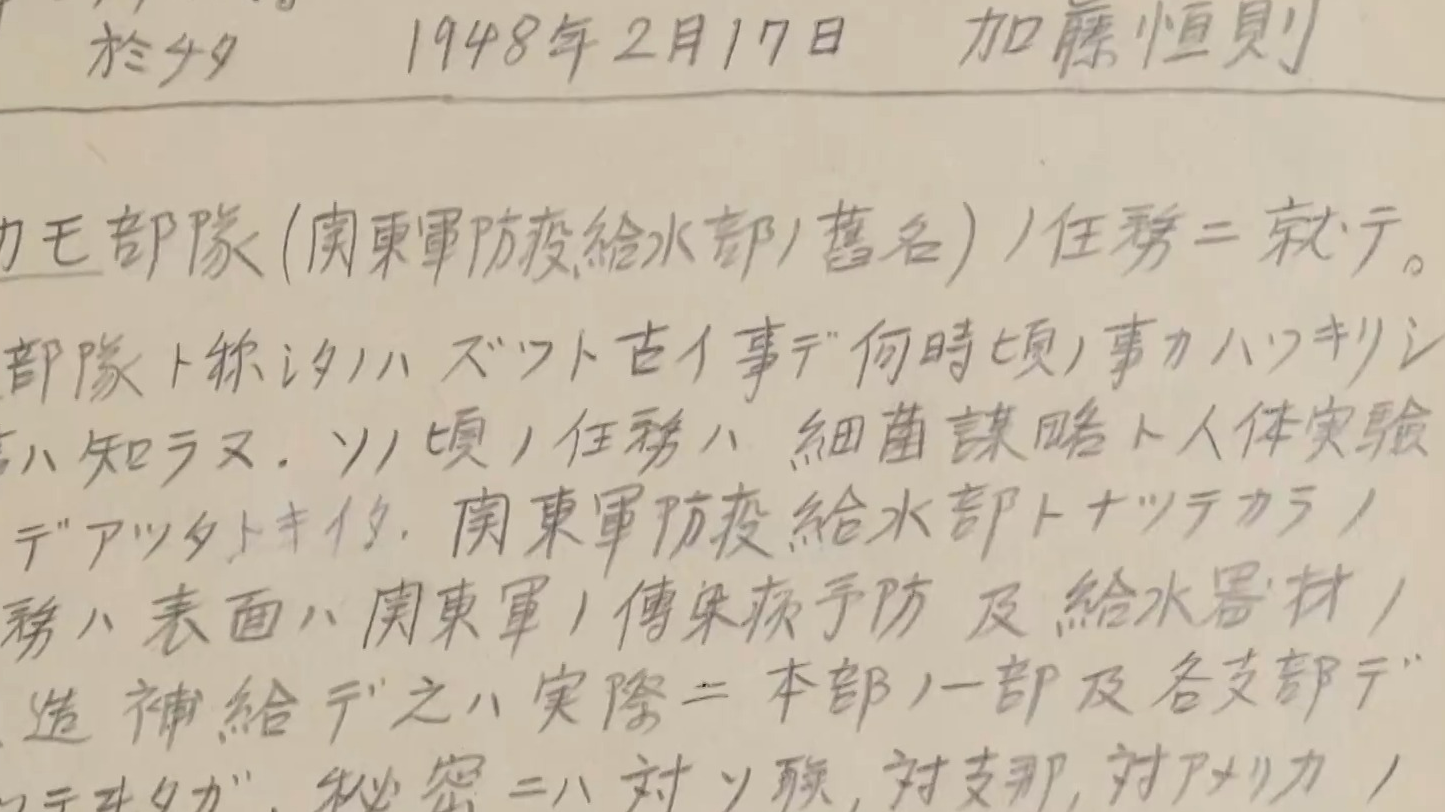 於チタ 1948年2月17日 加藤恒則
カモ部隊(関東軍防疫給水部ノ舊名)ノ任務ニ就テ。
部隊ト称シタノハ ズツト古イ事デ何時頃ノ事カハツキリシ
ハ知ラヌ. ソノ頃ノ任務ハ 細菌謀略ト人体実験
デアツタトキイタ. 関東軍防疫給水部トナツテカラノ
務ハ表面ハ関東軍ノ傳染病予防 及給水器材ノ
造補給デ之ハ実際ニ本部ノ一部及各支部デ
テヰタガ, 秘密ニハ対ソ聯, 対支那, 対アメリカノ